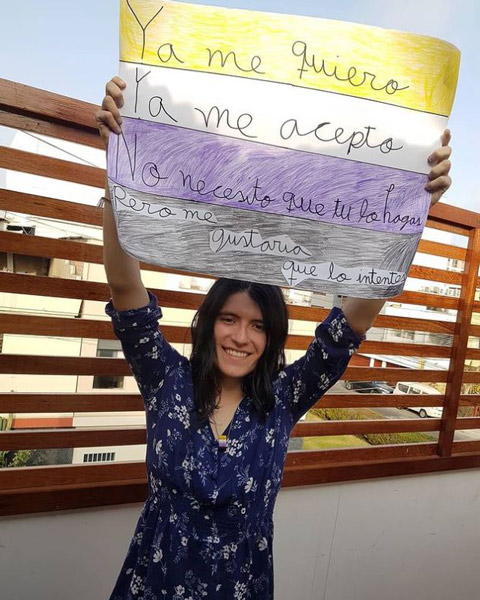 Ya me quiero
Ya me acepto
No necesito que tu lo hagas
Pero me
gustaria
que lo intentes